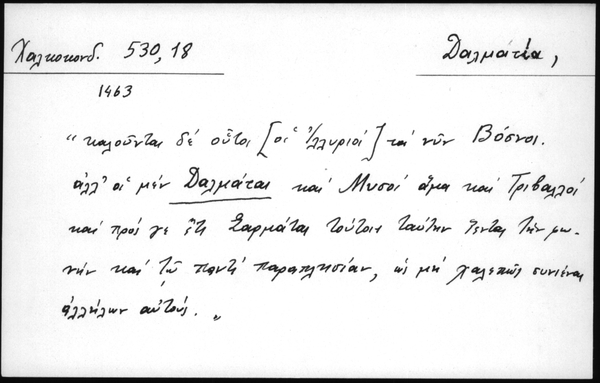 Χαλκοκονδ. 530,18
Δαλμάτια,
1463
"καλοῦνται δέ οὗτοι [οἱ Ἰλλυριοί] τά νῦν Βόσνοι.
ἀλλ' οἱ μέν Δαλμάται καί Μυσοί ἅμα καί Τριβαλλοί
καί πρός γε ἔτι Σαρμάται τούτοις ταύτην ἵενται τήν φω-
νήν καί τῷ παντί παραπλησίαν, ὡς μή χαλεπῶς συνιέναι
ἀλλήλων αὐτούς."